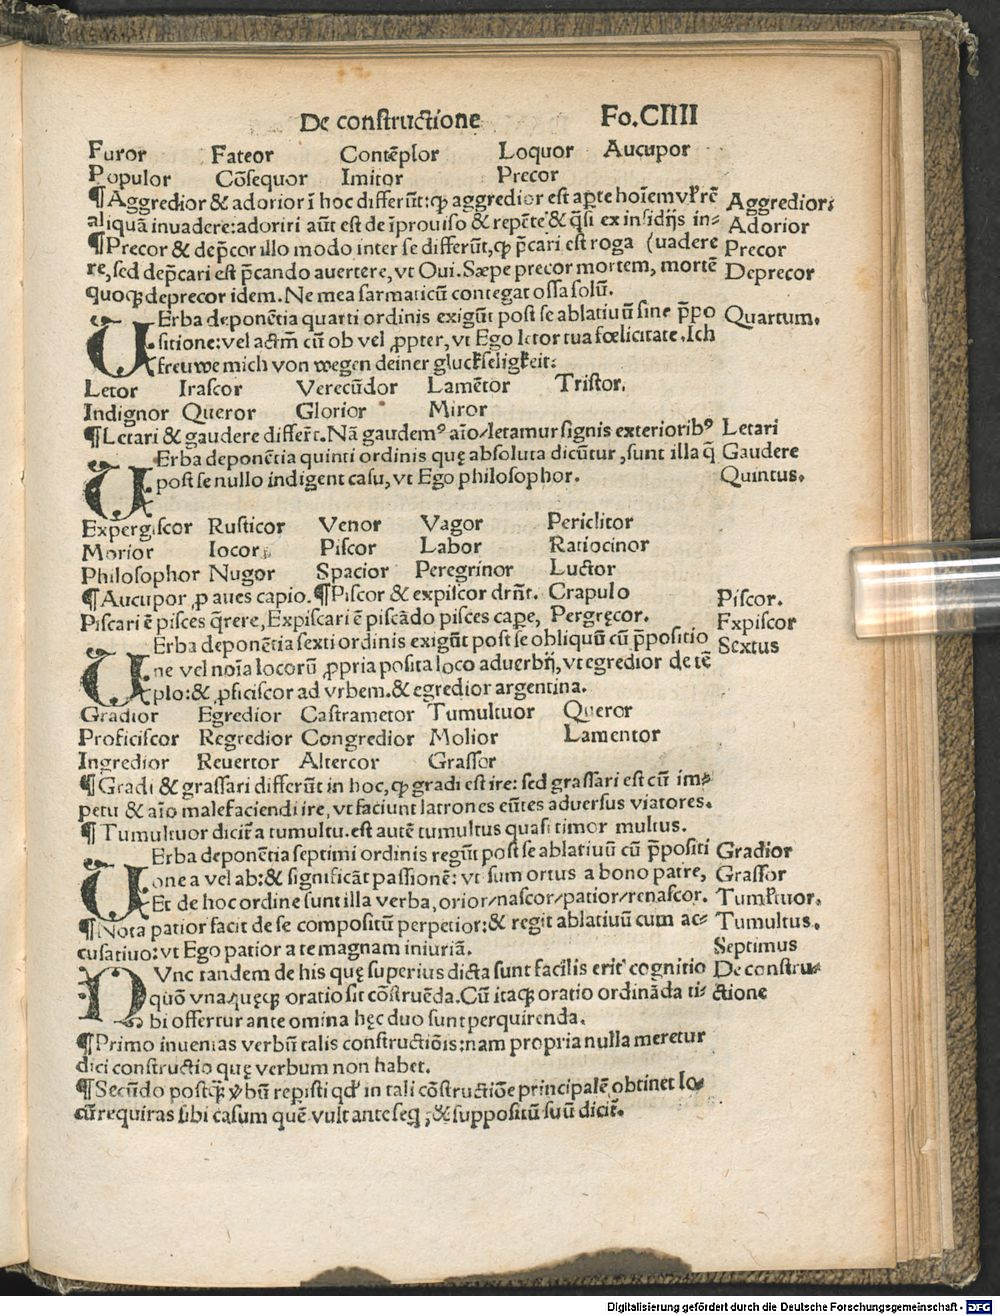 De constructione Fo.CIIII
Furor Fateor Contēplor Loquor Aucupor
Populor Cōsequor Imitor Precor
¶Aggredior & adorior ī hoc differūt:ꝙ aggredior est aꝑte hoīem vl̓ rē Aggredior:
aliquā inuadere:adoriri aūt est de īprouiso & repēte & q̄si ex insidijs in= Adorior
¶Precor & dep̄cor illo modo inter se differūt,ꝙ p̄cari est roga (uadere Precor
re,sed dep̄cari est p̄cando auertere, vt Oui. Sæpe precor mortem, mortē Deprecor
quoqꝫ deprecor idem. Ne mea sarmaticū contegat ossa solū.
VErba deponētia quarti ordinis exigūt post se ablatiuū sine p̄po Quartum.
sitione:vel actm̄ cū ob vel ꝓpter, vt Ego letor tua fœlicitate. Ich
freuwe mich von wegen deiner gluckseligkeit:
Letor Irascor Verecūdor Lamētor Tristor.
Indignor Queror Glorior Miror
¶Letari & gaudere differt̄. Nā gaudemꝰ aīo/letamur signis exterioribꝰ Letari
VErba deponētia quinti ordinis quę absoluta dicūtur, sunt illa q̄ Gaudere
post se nullo indigent casu, vt Ego philosophor. Quintus.
Expergiscor Rusticor Venor Vagor Periclitor
Morior Iocor Piscor Labor Ratiocinor
Philosophor Nugor Spacior Peregrinor Luctor
¶Aucupor ,p aues capio. ¶Piscor & expiscor drn̄t. Crapulo Piscor.
Piscari ē pisces q̄rere, Expiscari ē piscādo pisces cape, Pergręcor. Expiscor
VErba deponētia sexti ordinis exigūt post se obliquū cū p̄positio Sextus
ne vel noīa locorū ꝓpria posita loco aduerbij, vt egredior de tē
plo:& ꝓficiscor ad vrbem.& egredior argentina.
Gradior Egredior Castrametor Tumultuor Queror
Proficiscor Regredior Congredior Molior Lamentor
Ingredior Reuertor Altercor Grassor
¶Gradi & grassari differūt in hoc, ꝙ gradi est ire: sed grassari est cū im=
petu & aīo malefaciendi ire, vt faciunt latrones eūtes aduersus viatores.
¶Tumultuor dicit̄ a tumultu. est autē tumultus quasi timor multus.
VErba deponētia septimi ordinis regūt post se ablatiuū cū p̄positi Gradior
one a vel ab:& significāt passionē: vt sum ortus a bono patre, Grassor
Et de hoc ordine sunt illa verba, orior/nascor/patior/renascor. Tumltuor.
¶Nota patior facit de se compositū perpetior:& regit ablatiuū cum ac= Tumultus.
cusatiuo: vt Ego patior a te magnam iniuriā. Septimus
NVnc tandem de his quę superius dicta sunt facilis erit cognitio De constru=
quō vnaquęqꝫ oratio sit cōstruēda. Cū itaqꝫ oratio ordināda ti= ctione
bi offertur ante omina hęc duo sunt perquirenda.
¶Primo inuenias verbū talis constructiōis:nam propria nulla meretur
dici constructio quę verbum non habet.
¶Secūdo postqꝫ v̓bū repisti qd̓ in tali cōstructiōe principalē obtinet lo=
cū requiras sibi casum quē vult ante seq, & suppositū suū dicit̄.
Digitalisierung gefördert durch die Deutsche Forschungsgemeinschaft - DFG